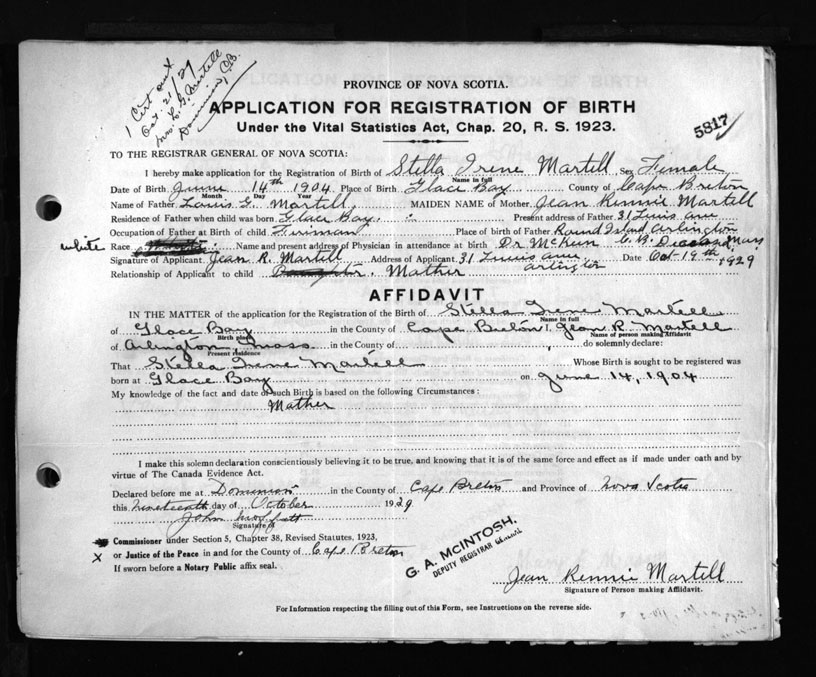 1 Cert out
Oct. 21/29
Mrs. L. G. Martell
Dominion, C.B.
PROVINCE OF NOVA SCOTIA.
APPLICATION FOR REGISTRATION OF BIRTH
Under the Vital Statistics Act, Chap. 20, R. S. 1923.
5817
TO THE REGISTRAR GENERAL OF NOVA SCOTIA:
I hereby make application for the Registration of Birth of Stella Irene Martell Sex Female
Name in full
Date of Birth June 14th 1904 Place of Birth Glace Bay County of Cape Breton
Month Day Year
Name of Father Louis G. Martell, MAIDEN NAME of Mother Jean Rennie Martell
Residence of Father when child was born Glace Bay. Present address of Father 31 Luis ave
Occupation of Father at Birth of child Fireman Place of birth of Father Round Island Arlington
white Race Name and present address of Physician in attendance at birth Dr McKeen C. B. Deceased, Mass
Signature of Applicant Jean R. Martell Address of Applicant 31 Luis ave. Date Oct-19th 1929
Relationship of Applicant to child Mother. arlington
AFFIDAVIT
IN THE MATTER of the application for the Registration of the Birth of Stella Irene Martell
Name in full
of Glace Bay in the County of Cape Breton I, Jean R. Martell
Birth place Name of person making Affidavit
of Arlington, Mass in the County of , do solemnly declare:
Present residence
That Stella Irene Martell Whose Birth is sought to be registered was
born at Glace Bay on June 14, 1904
My knowledge of the fact and date of such Birth is based on the following Circumstances:
Mother
I make this solemn declaration conscientiously believing it to be true, and knowing that it is of the same force and effect as if made under oath and by
virtue of The Canada Evidence Act.
Declared before me at Dominion in the County of Cape Breton and Province of Nova Scotia
this Nineteenth day of October 1929
John Moffatt
Signature of
Commissioner under Section 5, Chapter 38, Revised Statutes, 1923,
x or Justice of the Peace in and for the County of Cape Breton
If sworn before a Notary Public affix seal.
G. A. McINTOSH,
DEPUTY REGISTRAR GENERAL
Jean Rennie Martell
Signature of Person making Affidavit.
For Information respecting the filling out of this Form, see Instructions on the reverse side.